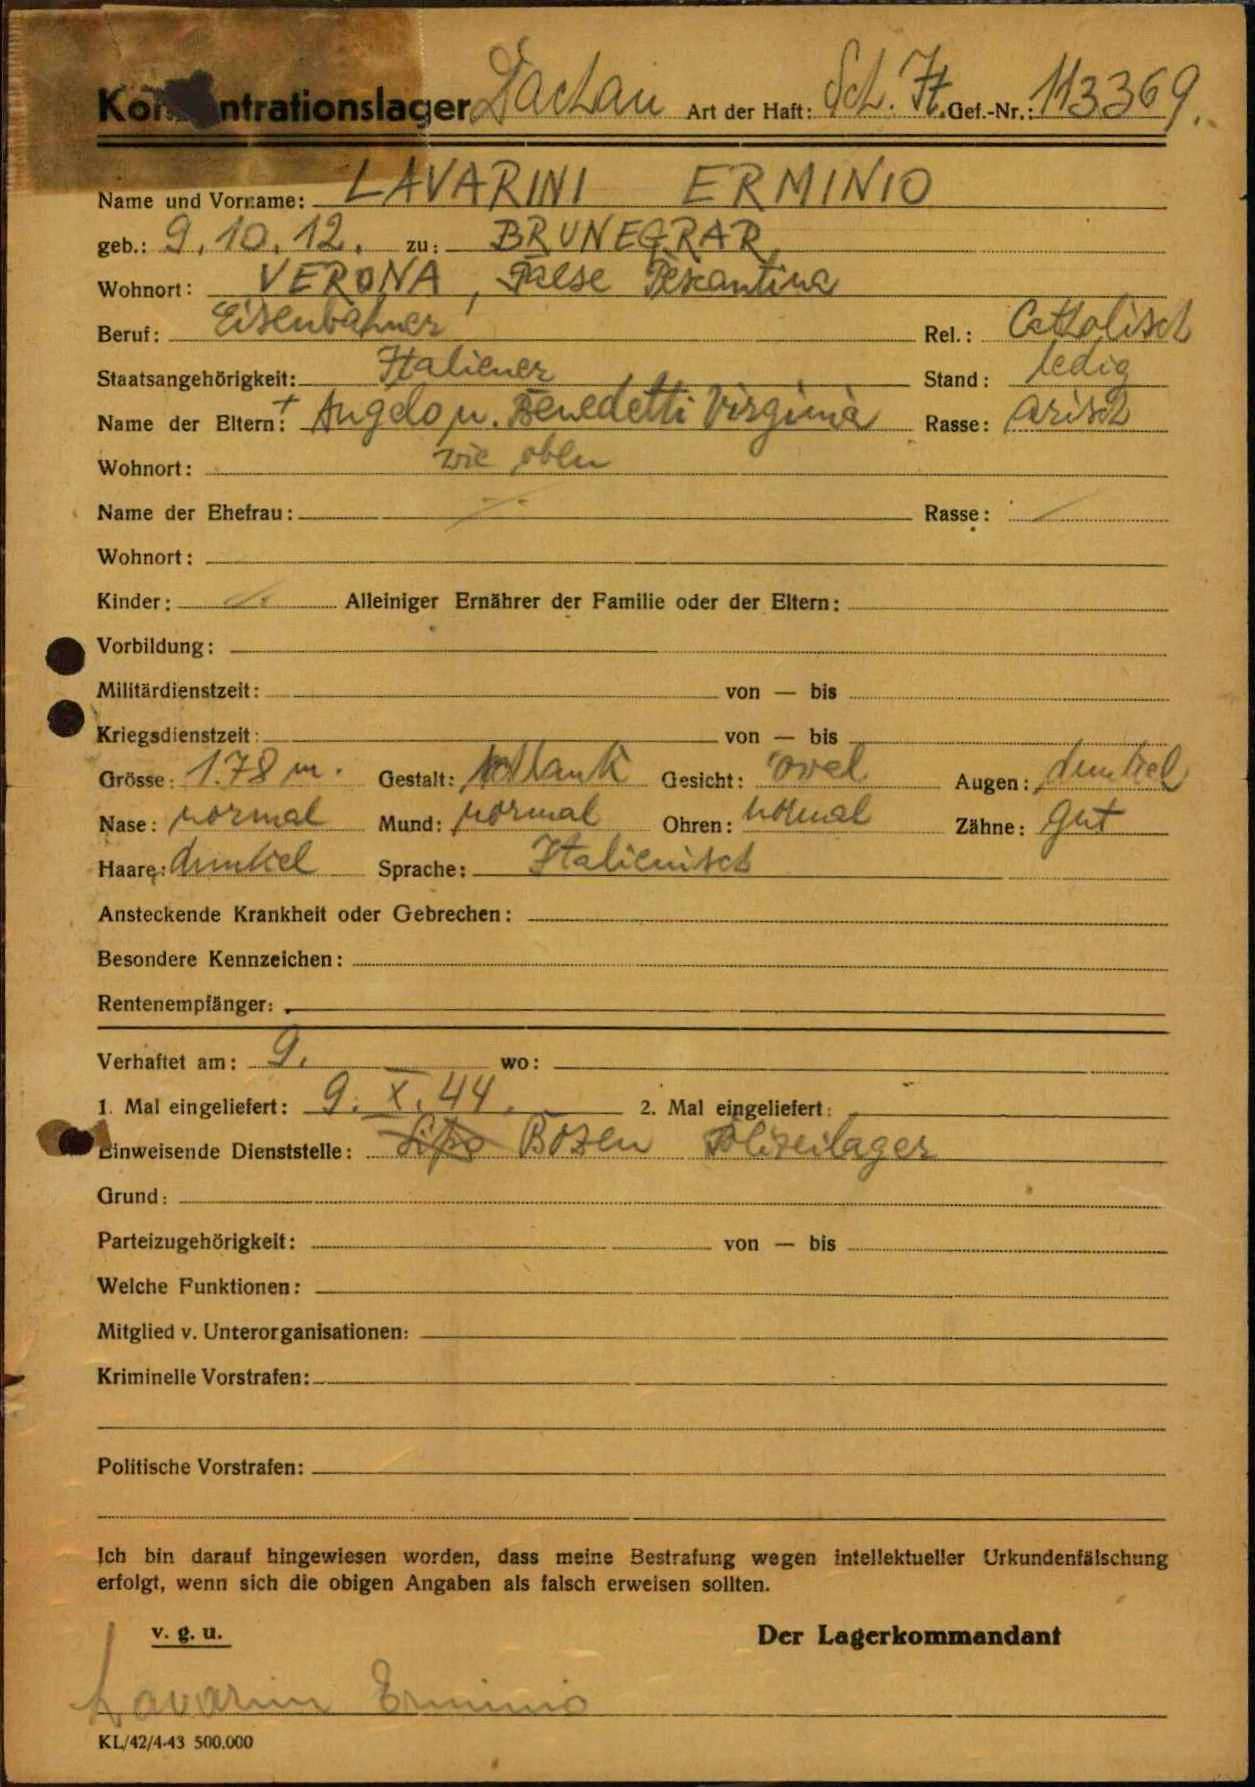 Konzentrationslager Dachau Art der Haft: Sch. It. Gef.-Nr.: 113369.
Name und Vorname: LAVARINI ERMINIO
geb.: 9.10.12. zu: BRUNEGRAR
Wohnort: VERONA, Pescantina
Beruf: Eisenbahner Rel.: Catholisch
Staatsangehörigkeit: Italiener Stand: ledig
Name der Eltern: + Angelo u. Benedetti Virginia Rasse: arisch
Wohnort: wie oben
Name der Ehefrau: Rasse:
Wohnort:
Kinder: Alleiniger Ernährer der Familie oder der Eltern:
Vorbildung:
Militärdienstzeit: von — bis
Kriegsdienstzeit: von — bis
Grösse: 1.78 m. Gestalt: schlank Gesicht: oval Augen: dunkel
Nase: normal Mund: normal Ohren: normal Zähne: gut
Haare: dunkel Sprache: Italienisch
Ansteckende Krankheit oder Gebrechen:
Besondere Kennzeichen:
Rentenempfänger:
Verhaftet am: 9. wo:
1. Mal eingeliefert: 9. X. 44. 2. Mal eingeliefert:
Einweisende Dienststelle: Sipo Bozen Polizeilager
Grund:
Parteizugehörigkeit: von — bis
Welche Funktionen:
Mitglied v. Unterorganisationen:
Kriminelle Vorstrafen:
Politische Vorstrafen:
Ich bin darauf hingewiesen worden, dass meine Bestrafung wegen intellektueller Urkundenfälschung
erfolgt, wenn sich die obigen Angaben als falsch erweisen sollten.
v. g. u. Der Lagerkommandant
Lavarini Erminio
KL/42/4-43 500.000